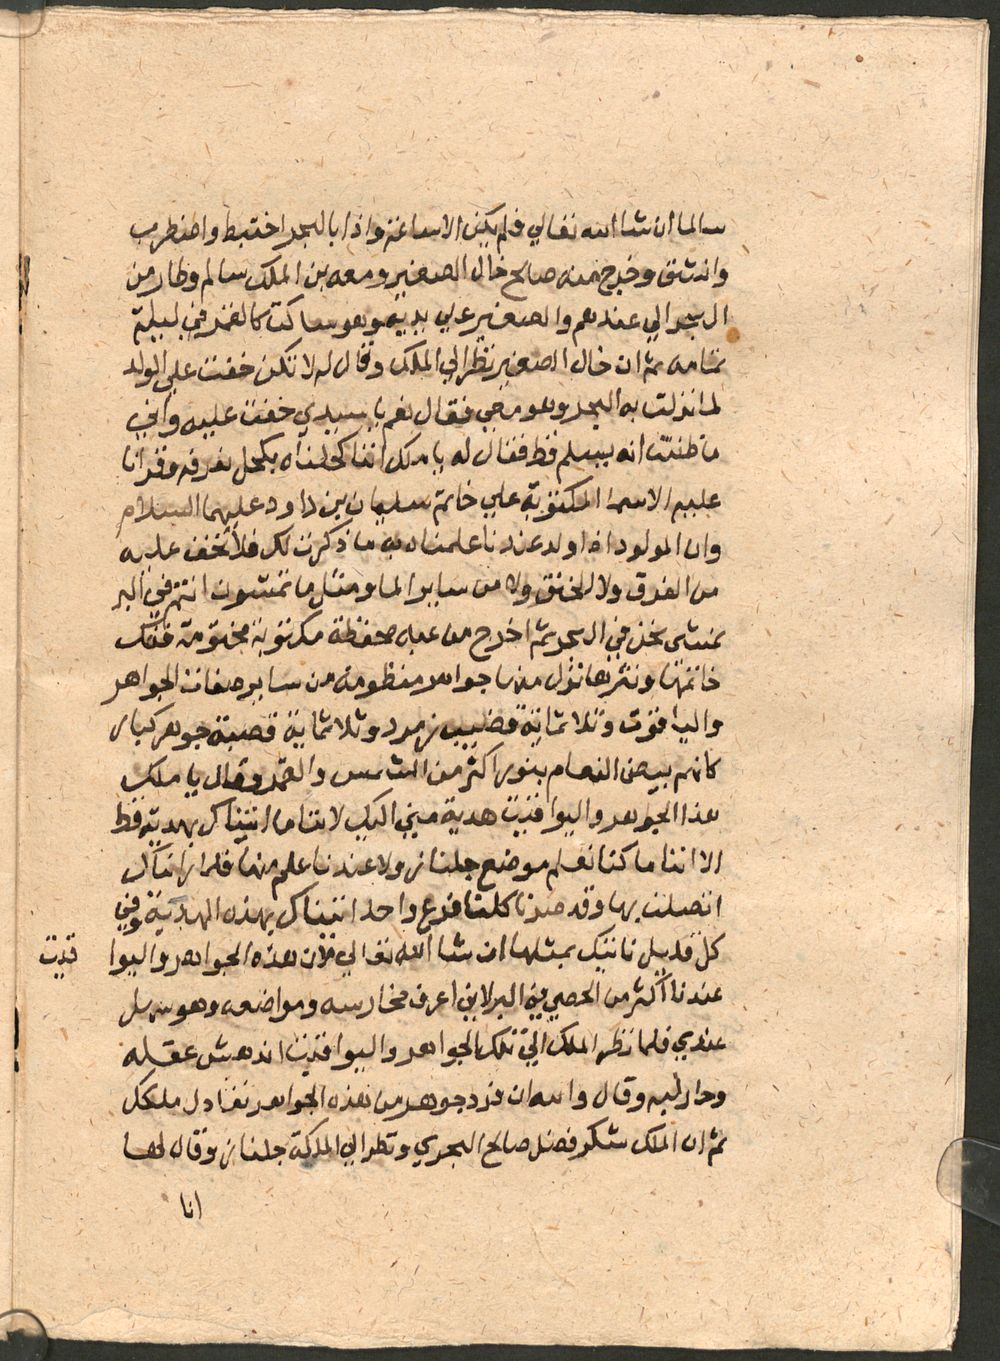 سالما ان شا الله تعالي فلم يكن الا ساعة واذا بالبحر اختبط واضطرب
وانشق وخرج منه صالح خال الصغير ومعه بن الملك سالم وطار من
البحر الي عندهم والصغير علي يديه وهو ساكت كالقمر في ليلة
تمامه ثم ان خال الصغير نظر الي الملك وقال له لا تكن خفت علي الولد
لما نزلت به البحر وهو معي فقال نعم يا سيدي خفت عليه واني
ما ظننت انه يسلم قط فقال له يا ملك اننا كحلناه بكحل نعرفه وقرانا
عليه الاسما المكتوبة علي خاتم سليمان بن داود عليهما السلام
وان المولود اذا ولد عندنا علمنا به ما ذكرت لك فلا تخف عليه
من الغرق ولا الخنق ولا من ساير الما ومثل ما تمشون انتم في البر
نمشي نحن في البحر ثم اخرج من عبه محفظة مكتوبة مختومة ففك
خاتمها ونثرها فنزل منها جواهر منظومة من ساير صفات الجواهر
واليواقوت وثلاثماية قضيب زمرد وثلاثماية قصبة جوهر كبار
كانهم بيض النعام بنور اكثر من الشمس والقمر وقال يا ملك
هذا الجوهر واليواقيت هدية مني اليك لاننا ما اتيناك بهدية قط
الا اننا ما كنا نعلم موضع جلنار ولا عندنا علم منها فلما رايناك
اتصلت بها وقد صرنا كلنا فرع واحد اتيناك بهذه الهدية وفي
كل قليل ناتيك بمثلها ان شا الله تعالي فان هذه الجواهر واليوا قيت
عندنا اكثر من الحصي في البر لاني اعرف مخارسه ومواضعه وهو سهل
عندي فلما نظر الملك الي تلك الجواهر واليواقيت اندهش عقله
وحار لبه وقال والله ان فرد جوهر من هذه الجواهر تعادل ملكك
ثم ان الملك شكر فضل صالح البحري ونظر الي الملكة جلنار وقال لها
انا